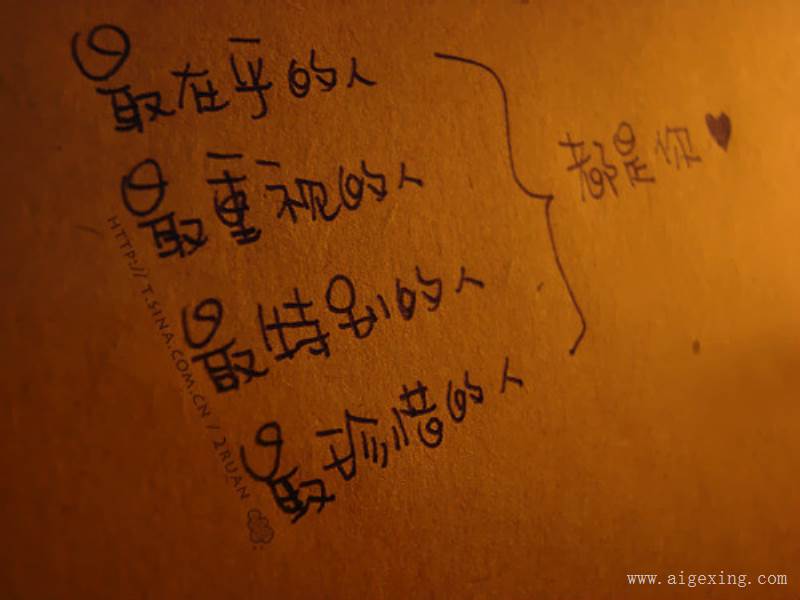 最在乎的人
最重视的人
最特别的人
最珍惜的人
都是你♥
HTTP://T.SINA.COM.CN/2RUAN
www.aigexing.com